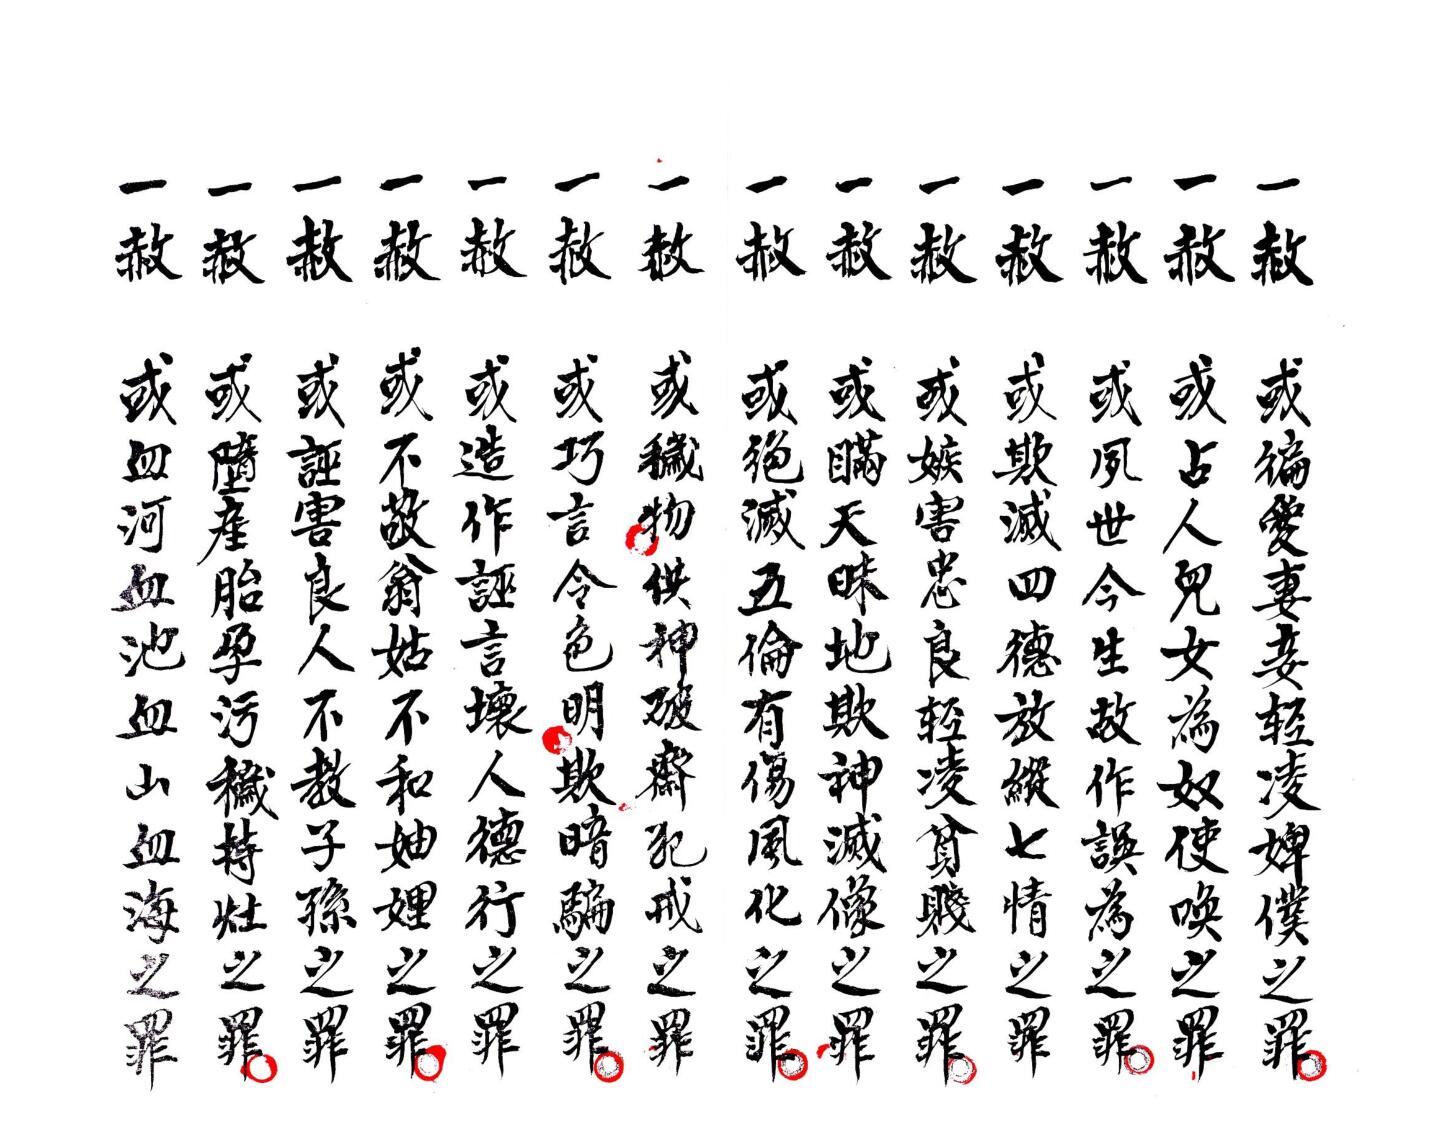 一赦 或徧愛妻妾轻凌婢僕之罪
一赦 或占人兒女為奴使喚之罪
一赦 或夙世今生故作誤為之罪
一赦 或欺滅四德放縱七情之罪
一赦 或嫉害忠良轻凌貧賤之罪
一赦 或瞞天昧地欺神滅像之罪
一赦 或絕滅五倫有傷風化之罪
一赦 或穢物供神破齋犯戒之罪
一赦 或巧言令色明欺暗騙之罪
一赦 或造作誣言壞人德行之罪
一赦 或不敬翁姑不和妯娌之罪
一赦 或誣害良人不教子孫之罪
一赦 或墮產胎孕污穢持灶之罪
一赦 或血河血池血山血海之罪